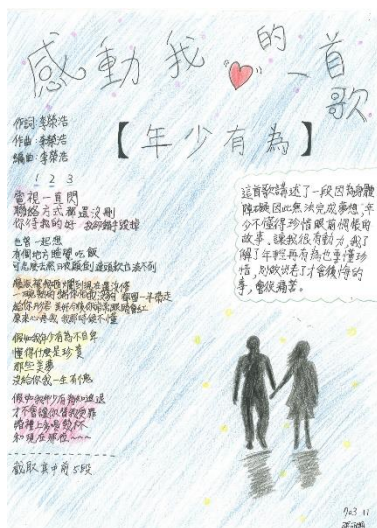 感動我的一首歌
【年少有為】
作詞:李榮浩
作曲:李榮浩
編曲:李榮浩
1 2 3
電視一直閃
聯絡方式都還沒刪
你待我的好 我卻錯手毀掉
也曾一起想
有個地方睡覺吃飯
假如我年少有為不自卑
懂得什麼是珍貴
那些美夢
沒給你我一生有愧
假如我年少有為知進退
才不會讓你替我受罪
婚禮上多喝幾杯
和現在那位~~~
截取其中前5段
這首歌講述了一段因為身體
障礙因此無法完成夢想,年
少不懂得珍惜眼前個裝的
故事。讓我很有動力,我了
解了年輕再有為也要懂珍
惜,
才會後悔的
事,會很痛苦。
703 11